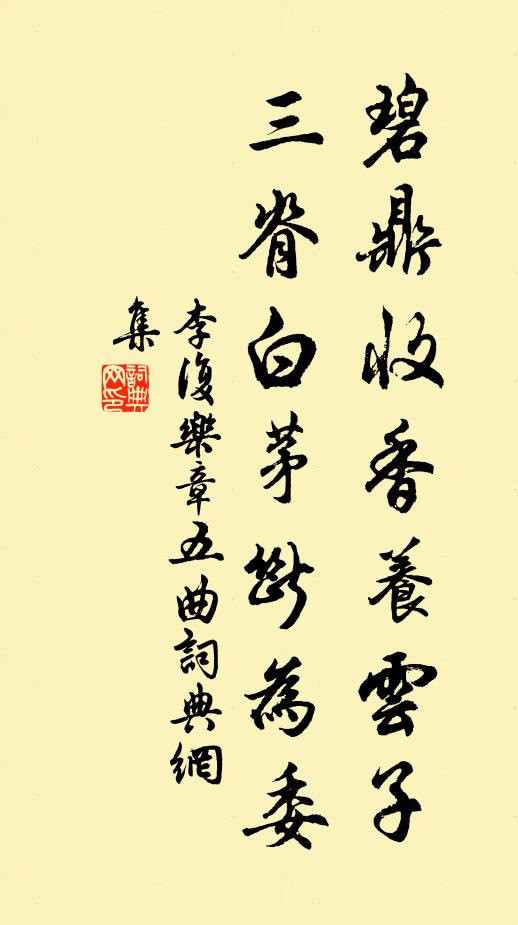 碧鼎收香養雲子
三脊白茅斷為委
李復樂章五曲詞典網
集
詞典
網印